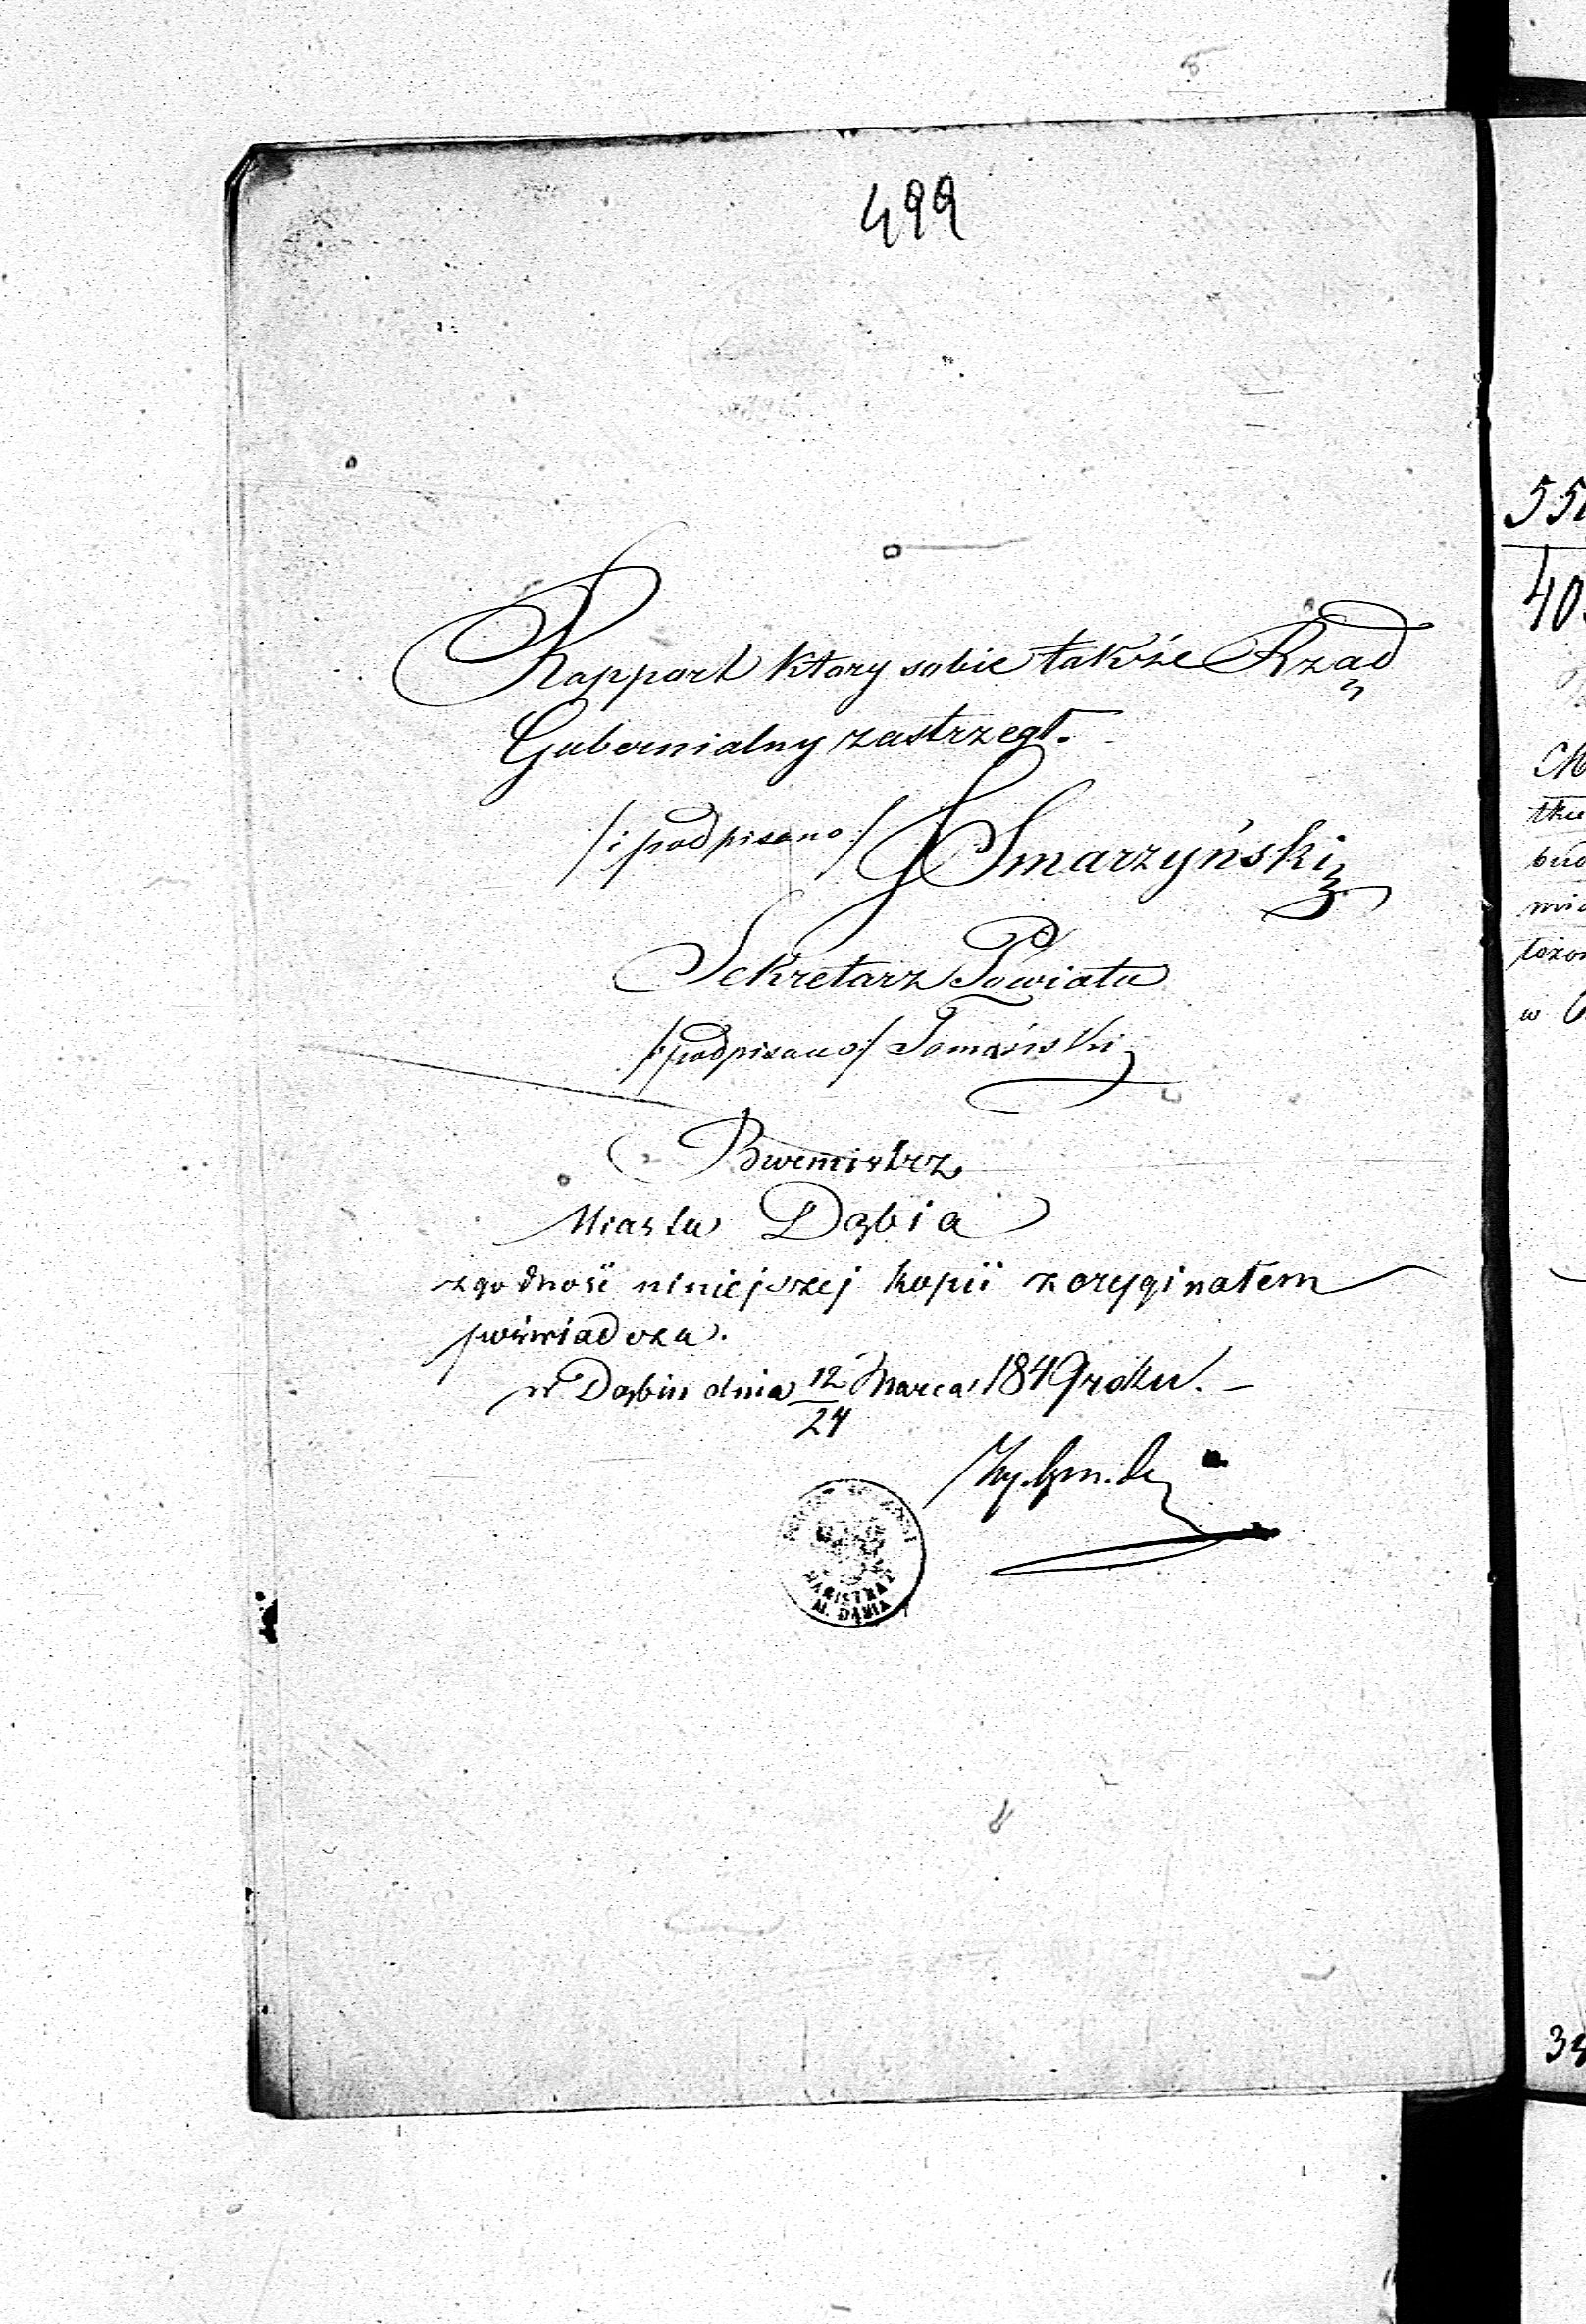 499
Rapport ktory sobie także Rząd
Gubernialny zastrzegł.
/:podpisano:/ Smarzyński
Sekretarz Powiatu
/:podpisano:/ Tomański
Burmistrz
Miasta Dąbia
zgodność niniejszej kopii z oryginałem
poświadcza.
w Dąbiu dnia 12/24 Marca 1849 roku. —
MAGISTRAT
M. DĄBIA
550